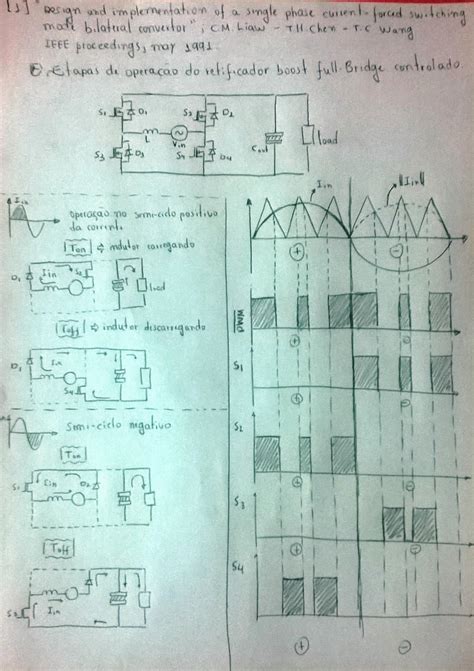 [1] "Design and implementation of a single phase current-forced switching
mode bilateral convertor", C.M. Liaw - T.H. Chen - T.C Wang
IEEE proceedings, may 1991
Etapas de operação do retificador boost full-Bridge controlado.
S1 D1 S2 D2
L Vin
S3 D3 S4 D4
Cout load
Iin
operação no semi-ciclo positivo
da corrente.
Ton ⇒ indutor carregando
D1 Iin S2
load
Toff ⇒ indutor descarregando
D1 Iin
S4
semi-ciclo negativo
Ton
S1 Iin D2
Toff
S3 Iin
Iin |Iin|
+ -
+
S1
+ -
S2
+ -
S3
+ -
S4
+ -